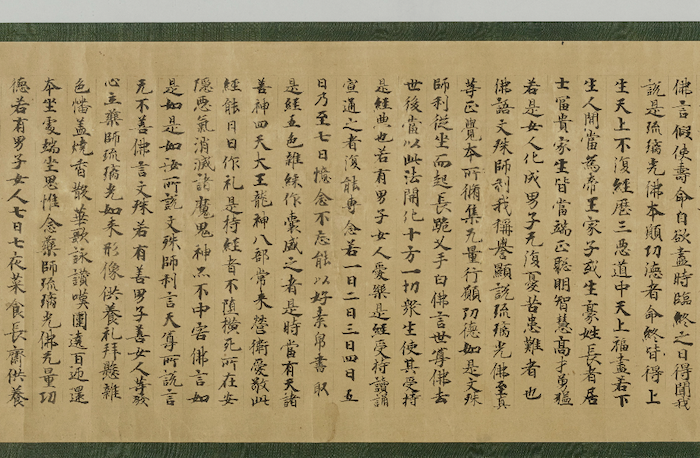 佛言假使壽命自欲盡時臨終之日得聞我
說是琉璃光佛本願功德者命終皆得上
生天上不復經歷三惡道中天上福盡若下
生人間當為帝王家子或生豪姓長者居
士富貴家生皆當端正聦明智慧高才勇猛
若是女人化成男子无復憂苦患難者也
佛語文殊師利我稱譽顯說琉璃光佛至真
等正覺本所脩集无量行願功德如是文殊
師利從坐而起長跪叉手白佛言世尊佛去
世後當以此法開化十方一切眾生使其受持
是經典也若有男子女人愛樂是經受持讀誦
宣通之者復能專念若一日二日三日四日五
日乃至七日憶念不忘能以好素帛書取
是經五色雜綵作囊盛之者是時當有天諸
善神四天大王龍神八部常来營衛愛敬此
經能日日作礼是持經者不墮橫死所在安
隱惡氣消滅諸魔鬼神亦不中害佛言如
是如是如汝所說文殊師利言天尊所說言
无不善佛言文殊若有善男子善女人等發
心立藥師琉璃光如来形像供養礼拜懸雜
色幡盖燒香散華歌詠讃嘆圍遶百迊還
本坐處端坐思惟念藥師琉璃光佛无量功
德若有男子女人七日七夜菜食長齋供養